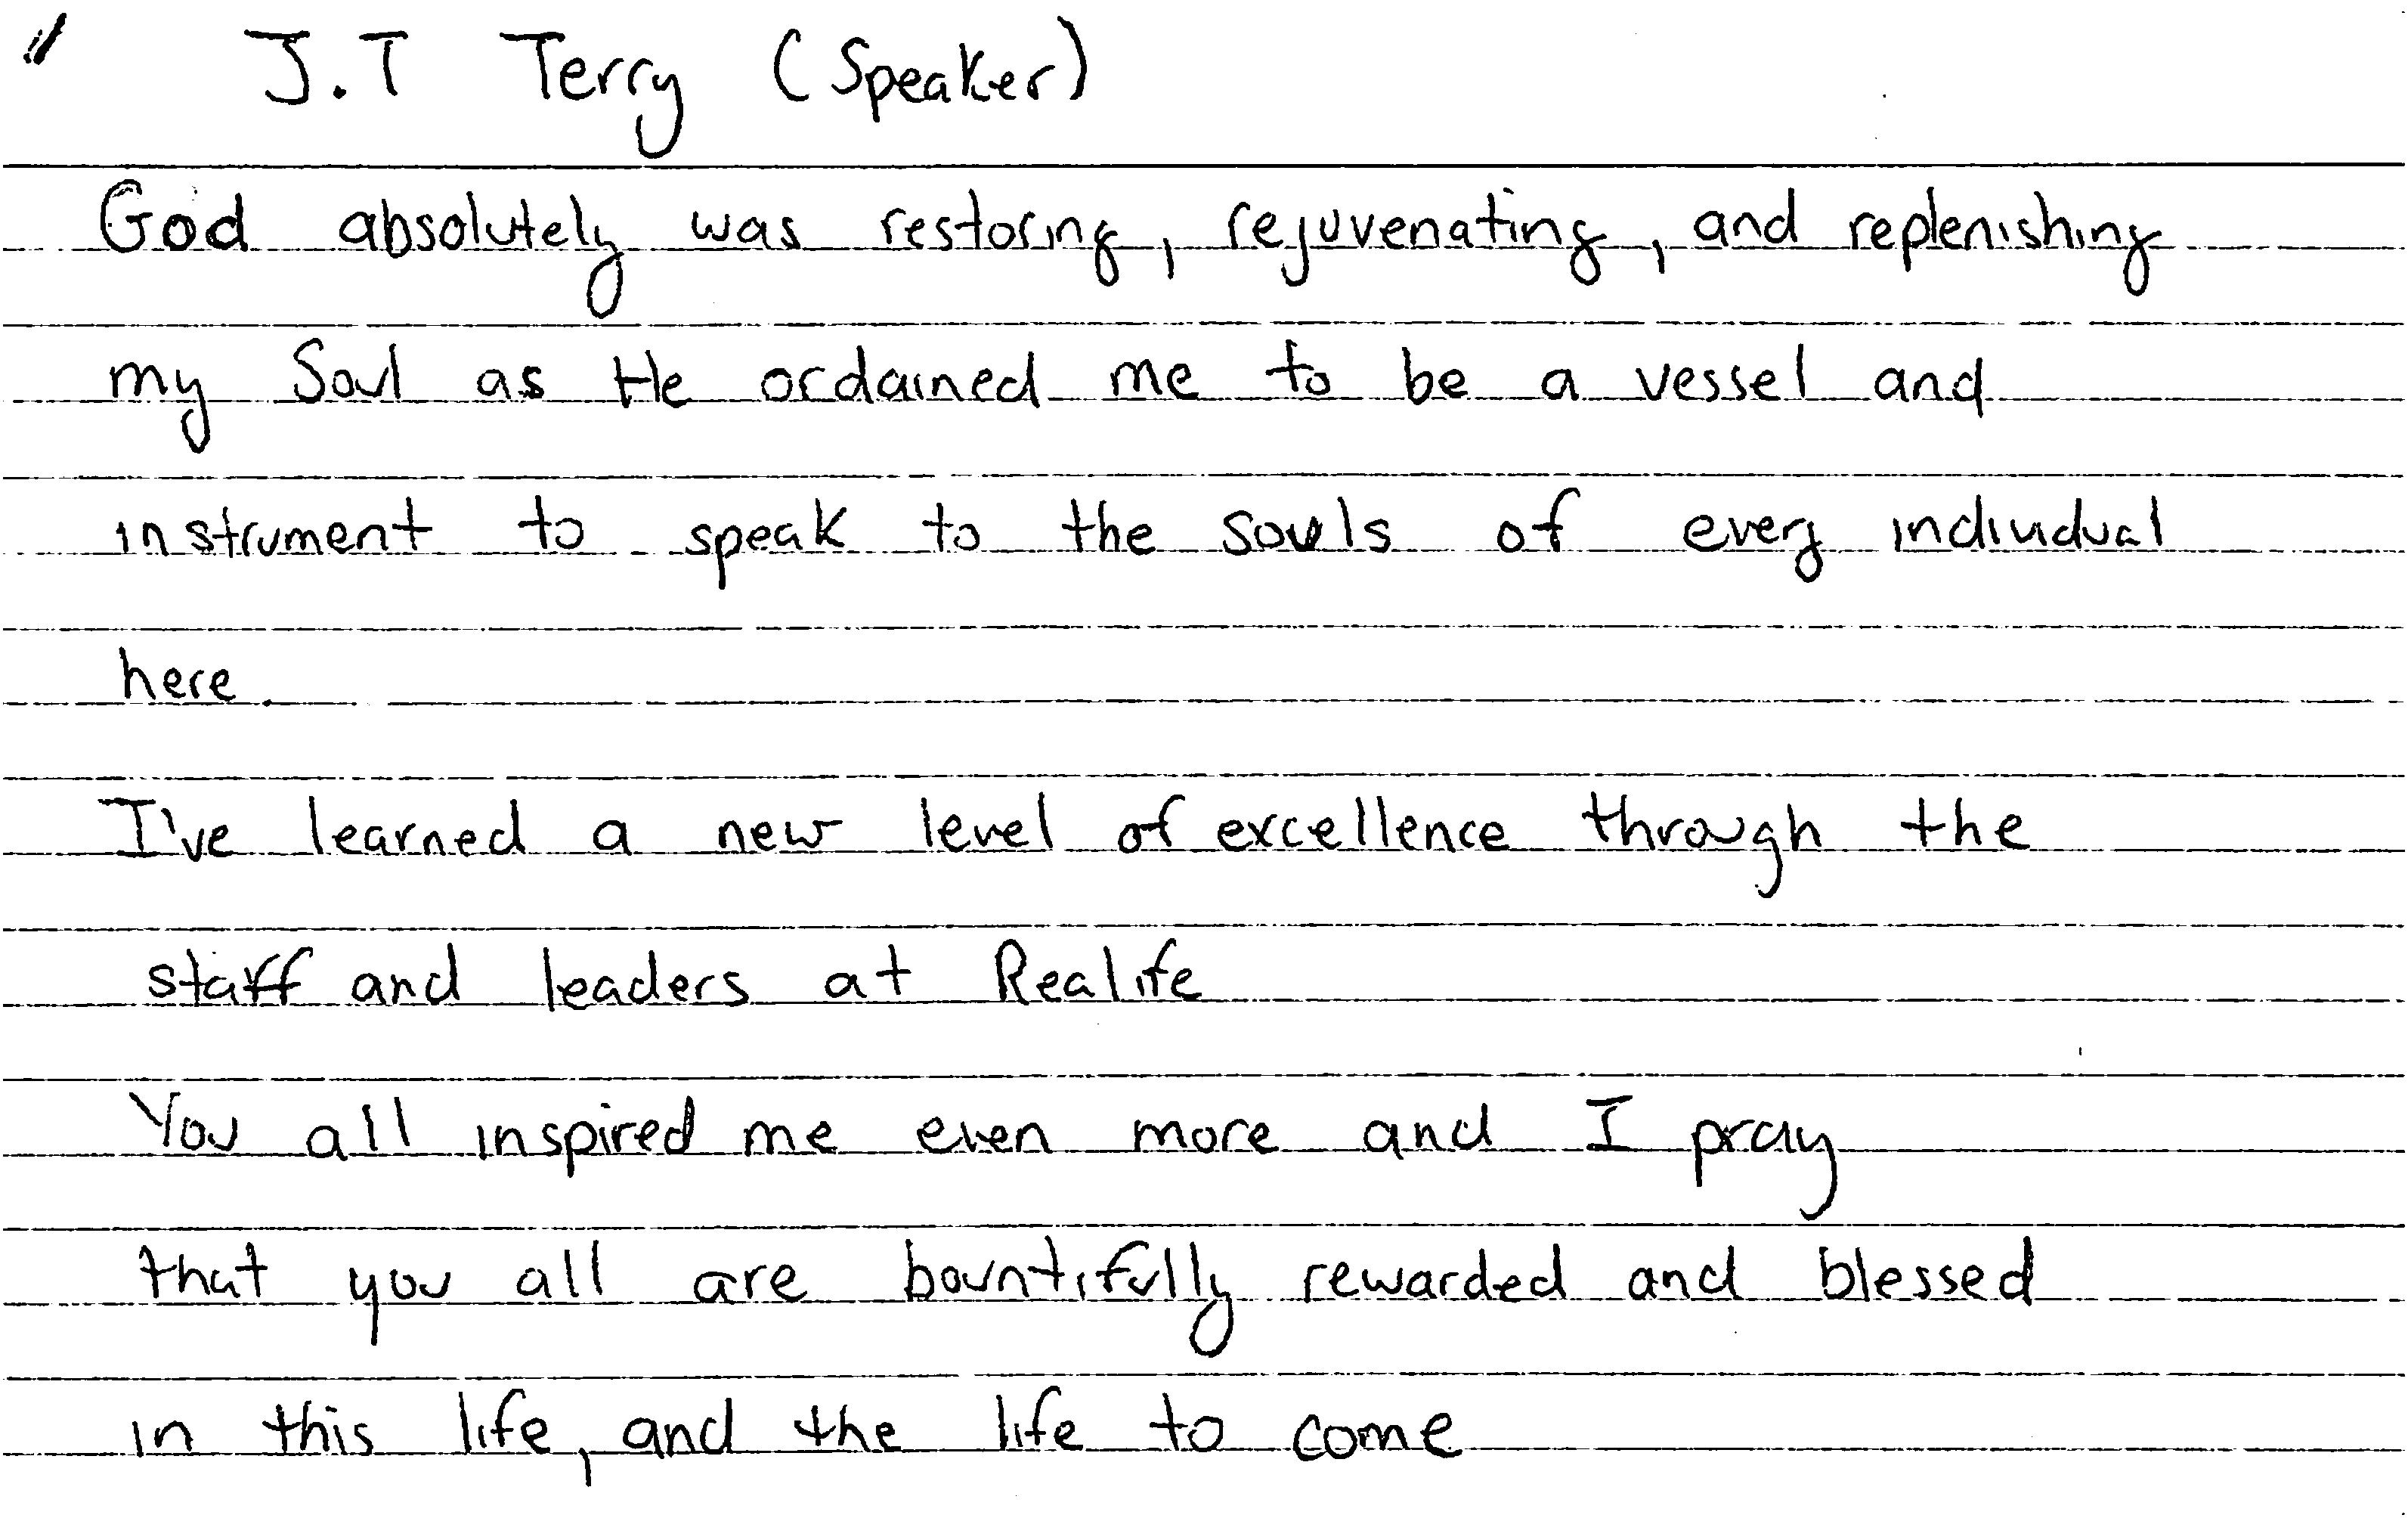 J.T Terry (Speaker)
God absolutely was restoring, rejuvenating, and replenishing
my Soul as He ordained me to be a vessel and
instrument to speak to the souls of every individual
here.
I've learned a new level of excellence through the
staff and leaders at Realife
You all inspired me even more and I pray
that you all are bountifully rewarded and blessed
in this life, and the life to come